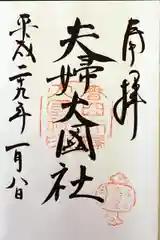 奉拝
夫婦大國社
平成二十九年一月八日